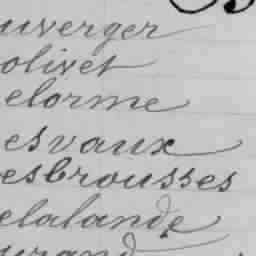 uverger
olivet
elorme
esvaux
esbrousses
elalande
urand